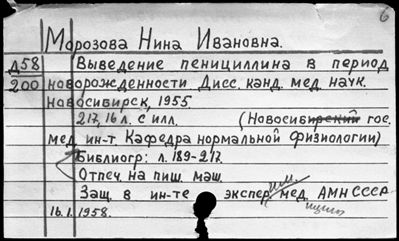 6
Морозова Нина Ивановна.
Д58 Выведение пенициллина в период
200 новорожденности Дисс. канд. мед. наук.
Новосибирск, 1955
217, 16 л. с илл. (Новосибирский гос.
мед. ин-т. Кафедра нормальной физиологии)
Библиогр: л. 189-217.
Отпеч. на пиш. маш.
Защ. в ин-те экспер. мед. АМН СССР
16.1.1958.